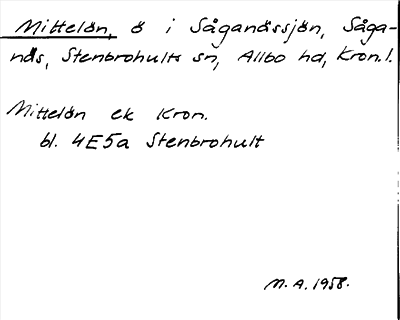 Mittelön, ö i Såganässjön, Såga-
näs, Stenbrohults sn, Allbo hd, Kron.l.
Mittelön ek Kron.
bl. 4E5a Stenbrohult
M. A. 1958.